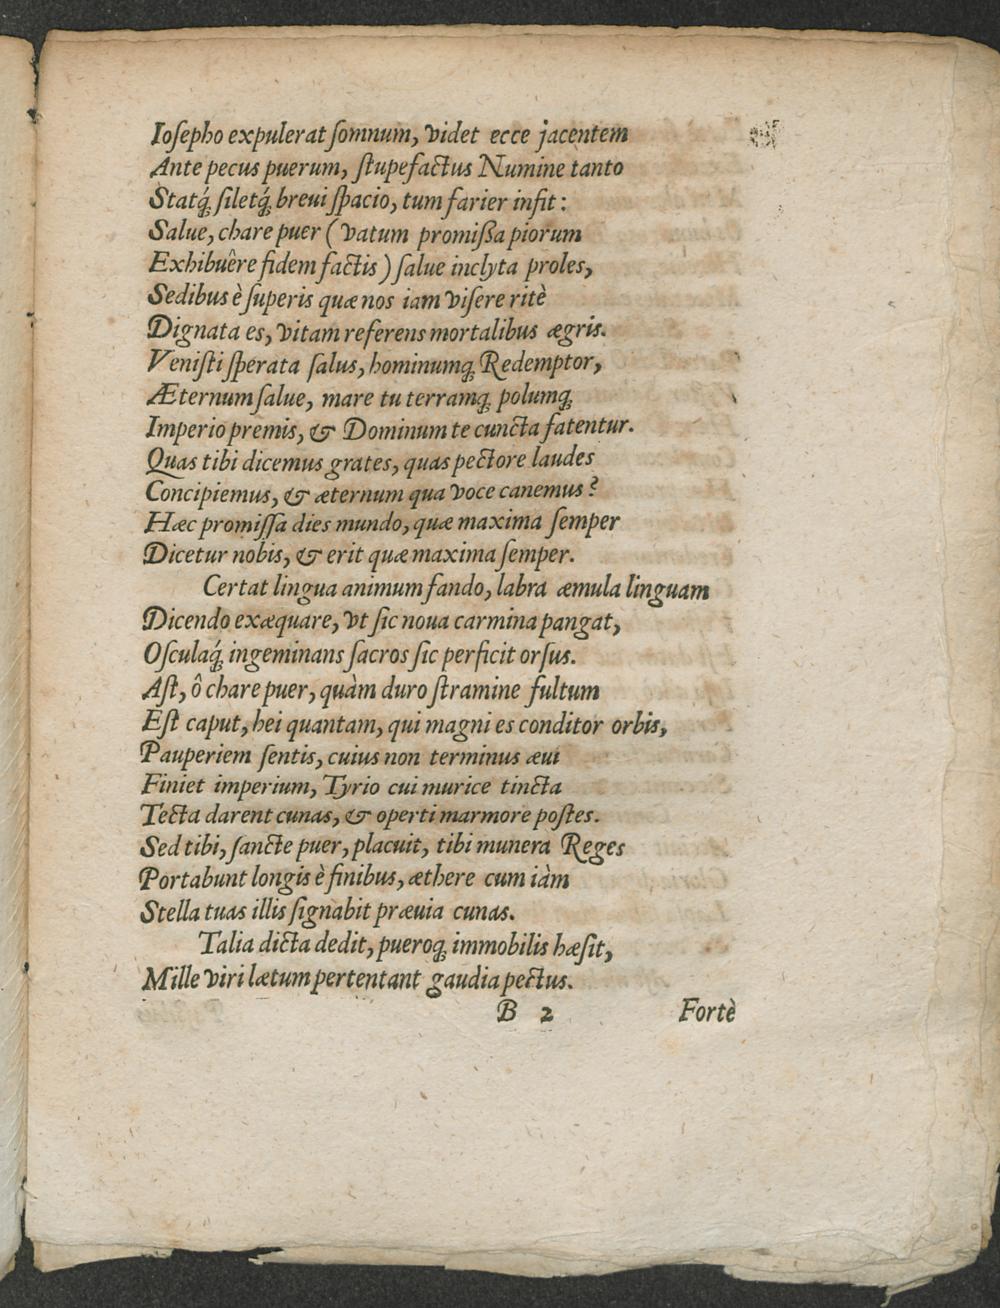 Ioſepho expulerat ſomnum, videt ecce jacentem
Ante pecus puerum, ſtupefactus Numine tanto
Statq́; ſiletq́; breui ſpacio, tum farier infit:
Salue, chare puer (vatum promiſſa piorum
Exhibuêre fidem factis) ſalue inclyta proles,
Sedibus è ſuperis quæ nos iam viſere ritè
Dignata es, vitam referens mortalibus ægris.
Veniſti ſperata ſalus, hominumq; Redemptor,
Æternum ſalue, mare tu terramq; polumq;
Imperio premis, & Dominum te cuncta fatentur.
Quas tibi dicemus grates, quas pectore laudes
Concipiemus, & æternum qua voce canemus?
Hæc promiſſa dies mundo, quæ maxima ſemper
Dicetur nobis, & erit quæ maxima ſemper.
Certat lingua animum fando, labra æmula linguam
Dicendo exæquare, vt ſic noua carmina pangat,
Oſculaq́; ingeminans ſacros ſic perficit orſus.
Aſt, ô chare puer, quàm duro ſtramine fultum
Eſt caput, hei quantam, qui magni es conditor orbis,
Pauperiem ſentis, cuius non terminus æui
Finiet imperium, Tyrio cui murice tincta
Tecta darent cunas, & operti marmore poſtes.
Sed tibi, ſancte puer, placuit, tibi munera Reges
Portabunt longis è finibus, æthere cum iàm
Stella tuas illis ſignabit præuia cunas.
Talia dicta dedit, pueroq; immobilis hæſit,
Mille viri lætum pertentant gaudia pectus.
B 2 Fortè